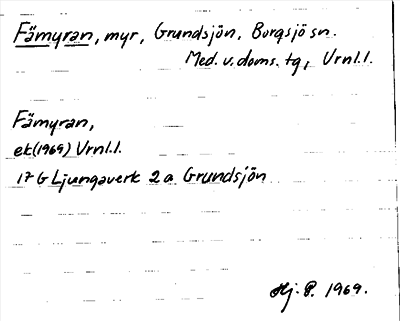 Fämyran, myr, Grundsjön, Borgsjö sn.
Med. v. doms. tg, Vrnl.l.
Fämyran,
ek (1969) Vrnl.l.
17 G Ljungaverk 2 a Grundsjön
Hj. P. 1969.